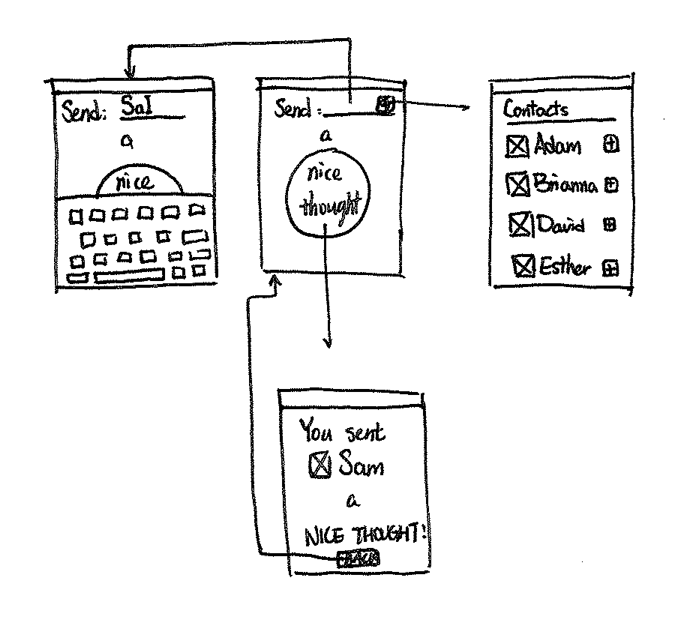 Send: Sal
a
nice
Send:
a
nice
thought
Contacts
Adam
Brianna
David
Esther
You sent
Sam
a
NICE THOUGHT!
BACK